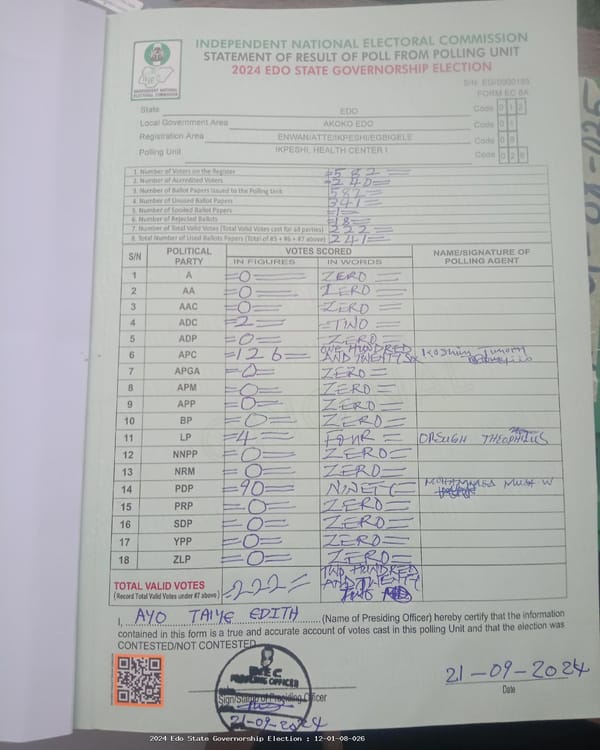 INDEPENDENT NATIONAL ELECTORAL COMMISSION
STATEMENT OF RESULT OF POLL FROM POLLING UNIT
2024 EDO STATE GOVERNORSHIP ELECTION
INDEPENDENT NATIONAL ELECTORAL COMMISSION
FORM EC 8A
State EDO Code 0 1 2
Local Government Area AKOKO EDO Code 0 1
Registration Area ENWAN/ATTE/IKPESHI/EGBIGELE Code 0 8
Polling Unit IKPESHI, HEALTH CENTER I Code 0 2 6
1. Number of Voters on the Register =582=
2. Number of Accredited Voters =240=
3. Number of Ballot Papers Issued to the Polling Unit 582=
4. Number of Unused Ballot Papers 341=
5. Number of Spoiled Ballot Papers =1=
6. Number of Rejected Ballots =18=
7. Number of Total Valid Votes (Total Valid Votes cast for all parties) =222=
8. Total Number of Used Ballots Papers (Total of #5 + #6 + #7 above) 241=
S/N POLITICAL PARTY VOTES SCORED NAME/SIGNATURE OF POLLING AGENT
IN FIGURES IN WORDS
1 A =0= ZERO=
2 AA =0= ZERO=
3 AAC =0= ZERO=
4 ADC =2= =TWO=
5 ADP =0= ZERO=
6 APC =126= ONE HUNDRED AND TWENTY SIX
7 APGA =0= ZERO=
8 APM =0= ZERO=
9 APP =0= ZERO=
10 BP =0= ZERO=
11 LP =4= FOUR= ORSUGH THEOPHILUS
12 NNPP =0= ZERO=
13 NRM =0= ZERO=
14 PDP =90= NINETY= MOHAMMED MUSA W
15 PRP =0= ZERO=
16 SDP =0= ZERO=
17 YPP =0= ZERO=
18 ZLP =0= ZERO=
TOTAL VALID VOTES =222= TWO HUNDRED AND TWENTY TWO
(Record Total Valid Votes under #7 above)
I, AYO TAIYE EDITH (Name of Presiding Officer) hereby certify that the information
contained in this form is a true and accurate account of votes cast in this polling Unit and that the election was
CONTESTED/NOT CONTESTED.
INEC
PRESIDING OFFICER
Sign/Stamp of Presiding Officer
21-09-2024
21-09-2024
Date
2024 Edo State Governorship Election : 12-01-08-026